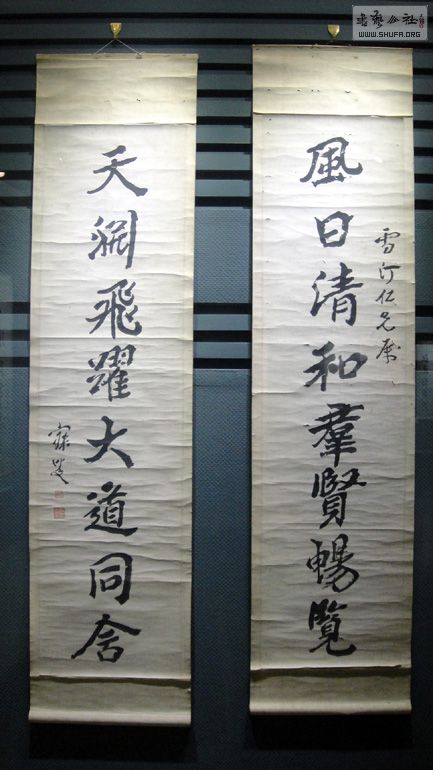 書藝公社
WWW.SHUFA.ORG
風日清和羣賢暢覽
雪汀仁兄屬
天淵飛躍大道同含
寐叟